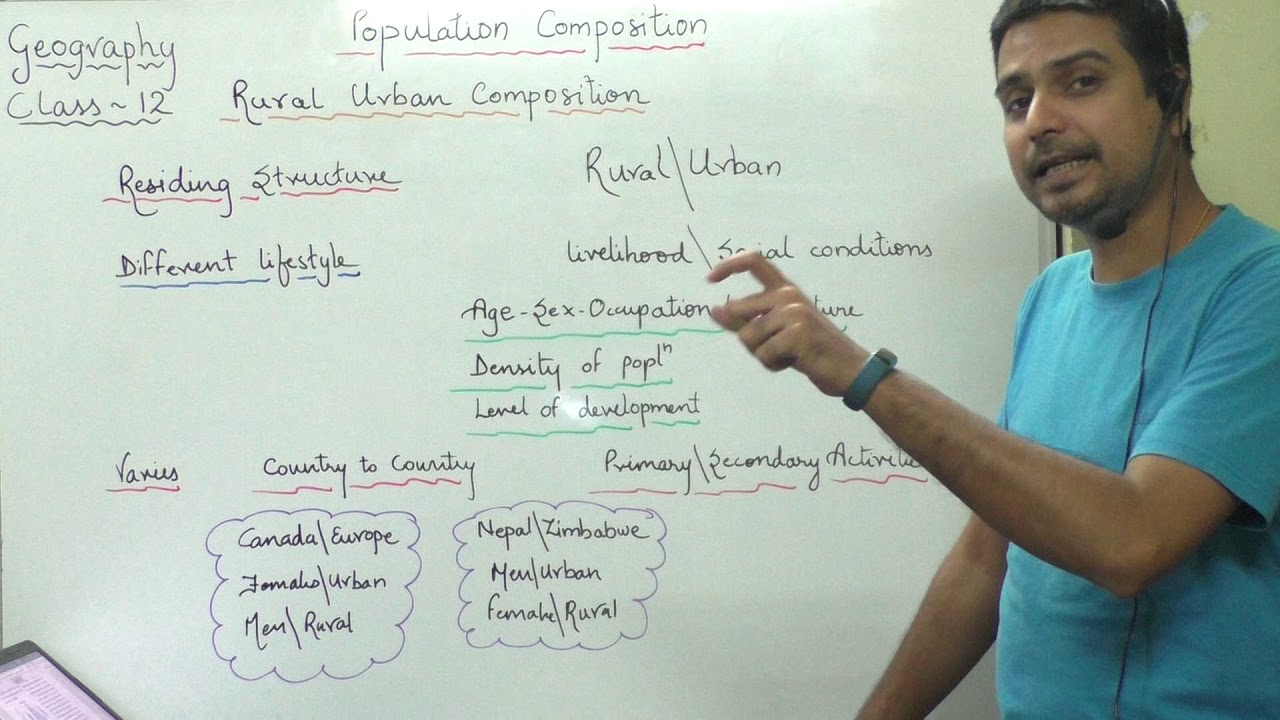 Geography
Class ~ 12
Population Composition
Rural Urban Composition
Residing Structure
Rural\Urban
Different lifestyle
livelihood\Social conditions
Age-Sex-Occupation
Density of poplⁿ
Level of development
Varies Country to Country Primary\Secondary
Canada\Europe
Females\Urban
Men\Rural
Nepal\Zimbabwe
Men\Urban
Female\Rural